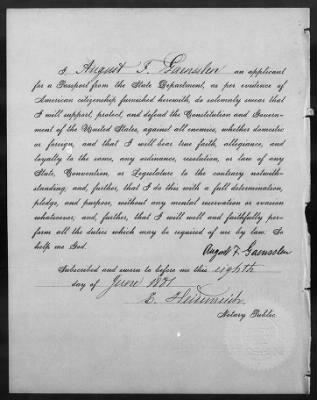 I August F. Gaensslen an applicant
for a Passport from the State Department, as per evidence of
American citizenship furnished herewith, do solemnly swear that
I will support, protect, and defend the Constitution and Govern-
ment of the United States, against all enemies, whether domestic
or foreign, and that I will bear true faith, allegiance, and
loyalty to the same, any ordinance, resolution, or law of any
State, Convention, or Legislature to the contrary notwith-
standing, and, further, that I do this with a full determination,
pledge, and purpose, without any mental reservation or evasion
whatsoever; and, further, that I will well and faithfully per-
form all the duties which may be required of me by law. So
help me God.
August F. Gaensslen
Subscribed and sworn to before me this eighth
day of June 1881
Notary Public.